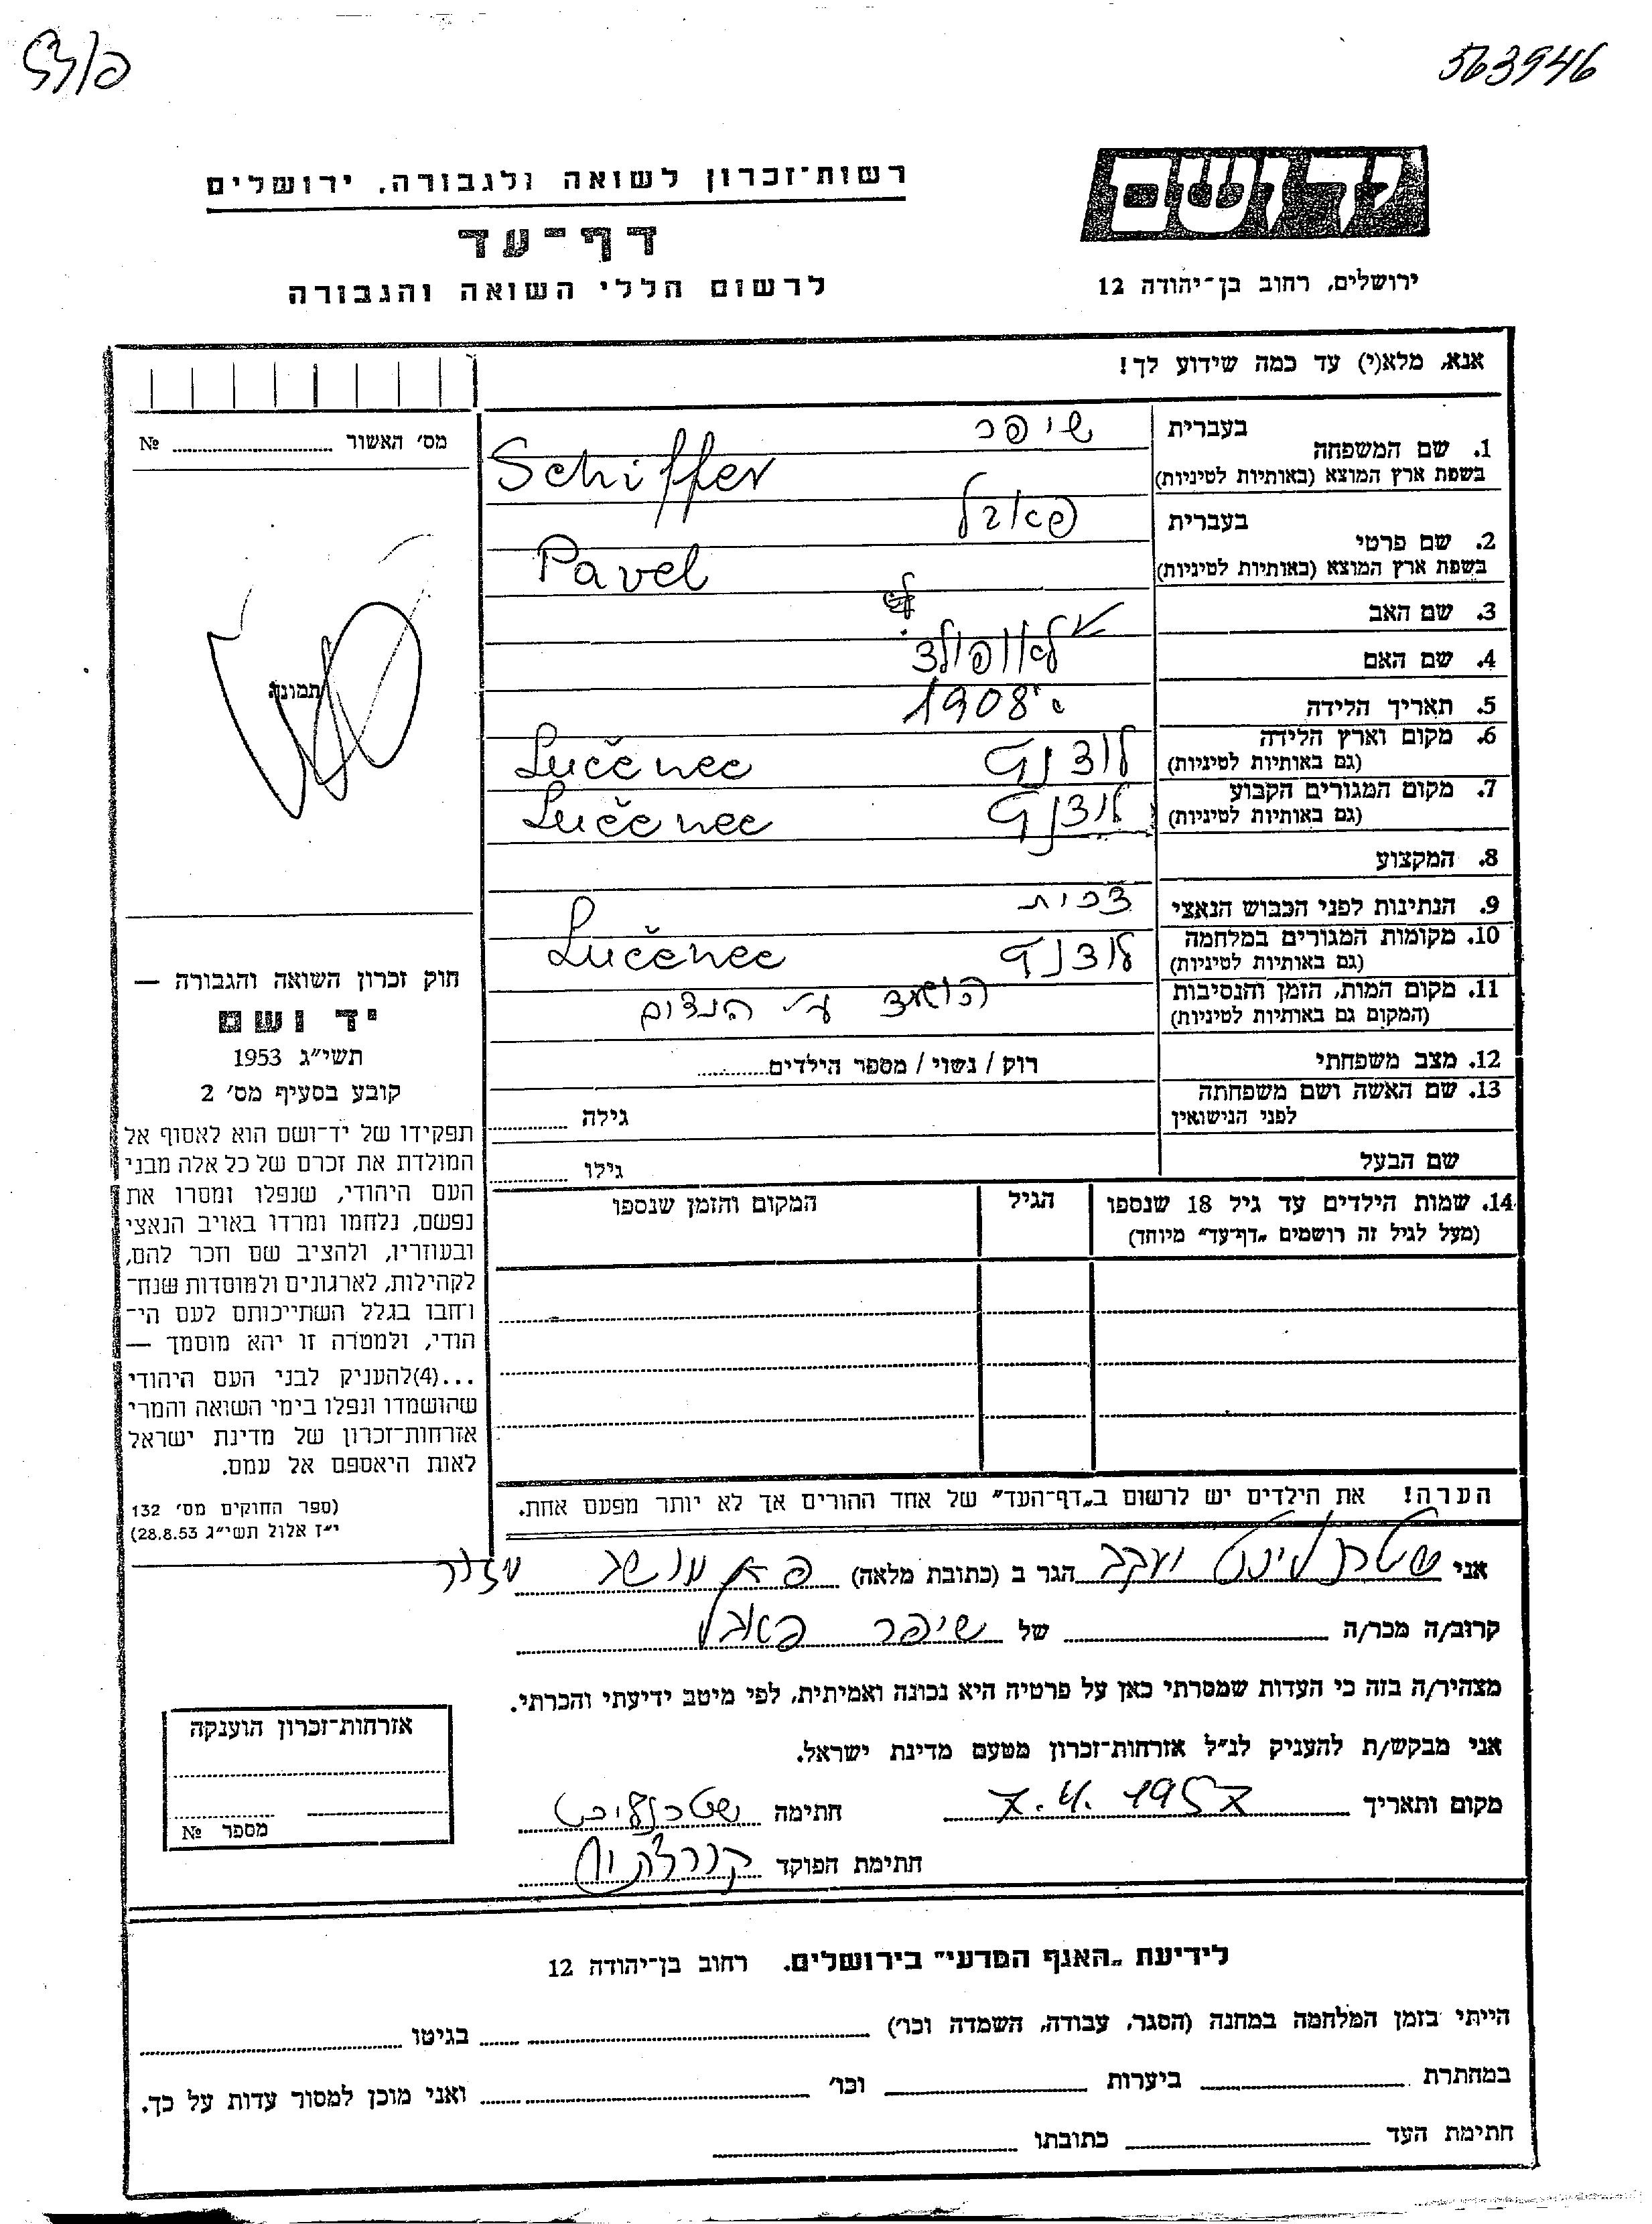 563946
יד ושם
ירושלים, רחוב בן־יהודה 12
רשות־זכרון לשואה ולגבורה, ירושלים
דף־עד
לרשום חללי השואה והגבורה
אנא, מלא(י) עד כמה שידוע לך!
1. שם המשפחה
בעברית שיפר
בשפת ארץ המוצא (באותיות לטיניות) Schiffer
2. שם פרטי
בעברית פאבל
בשפת ארץ המוצא (באותיות לטיניות) Pavel
3. שם האב
4. שם האם
5. תאריך הלידה 1908
6. מקום וארץ הלידה
(גם באותיות לטיניות) לוצנץ Lučenec
7. מקום המגורים הקבוע
(גם באותיות לטיניות) לוצנץ Lučenec
8. המקצוע
9. הנתינות לפני הכבוש הנאצי צכית
10. מקומות המגורים במלחמה
(גם באותיות לטיניות) לוצנץ Lučenec
11. מקום המות, הזמן והנסיבות
(המקום גם באותיות לטיניות) הושמד ע״י הנצים
12. מצב משפחתי רוק / נשוי / מספר הילדים
13. שם האשה ושם משפחתה
לפני הנישואין גילה
שם הבעל גילו
14. שמות הילדים עד גיל 18 שנספו הגיל המקום והזמן שנספו
(מעל לגיל זה רושמים „דף־עד״ מיוחד)
הערה! את הילדים יש לרשום ב„דף־העד״ של אחד ההורים אך לא יותר מפעם אחת.
מס׳ האשור №
תמונה
חוק זכרון השואה והגבורה —
יד ושם
תשי״ג 1953
קובע בסעיף מס׳ 2
תפקידו של יד־ושם הוא לאסוף אל
המולדת את זכרם של כל אלה מבני
העם היהודי, שנפלו ומסרו את
נפשם, נלחמו ומרדו באויב הנאצי
ובעוזריו, ולהציב שם וזכר להם,
לקהילות, לארגונים ולמוסדות שנח־
רחבו בגלל השתייכותם לעם הי־
הודי, ולמטרה זו יהא מוסמך —
...(4)להעניק לבני העם היהודי
שהושמדו ונפלו בימי השואה והמרי
אזרחות־זכרון של מדינת ישראל
לאות היאספם אל עמם.
(ספר החוקים מס׳ 132
י״ז אלול תשי״ג 28.8.53)
אני יעקב הגר ב (כתובת מלאה) מושב מזור
קרוב/ה מכר/ה של שיפר פאבל
מצהיר/ה בזה כי העדות שמסרתי כאן על פרטיה היא נכונה ואמיתית, לפי מיטב ידיעתי והכרתי.
אני מבקש/ת להעניק לנ״ל אזרחות־זכרון מטעם מדינת ישראל.
מקום ותאריך 7.4.1957 חתימה
חתימת הפוקד
אזרחות־זכרון הוענקה
מספר №
לידיעת „האגף המדעי״ בירושלים, רחוב בן־יהודה 12
הייתי בזמן המלחמה במחנה (הסגר, עבודה, השמדה וכו׳) בגיטו
במחתרת ביערות וכו׳ ואני מוכן למסור עדות על כך.
חתימת העד כתובתו